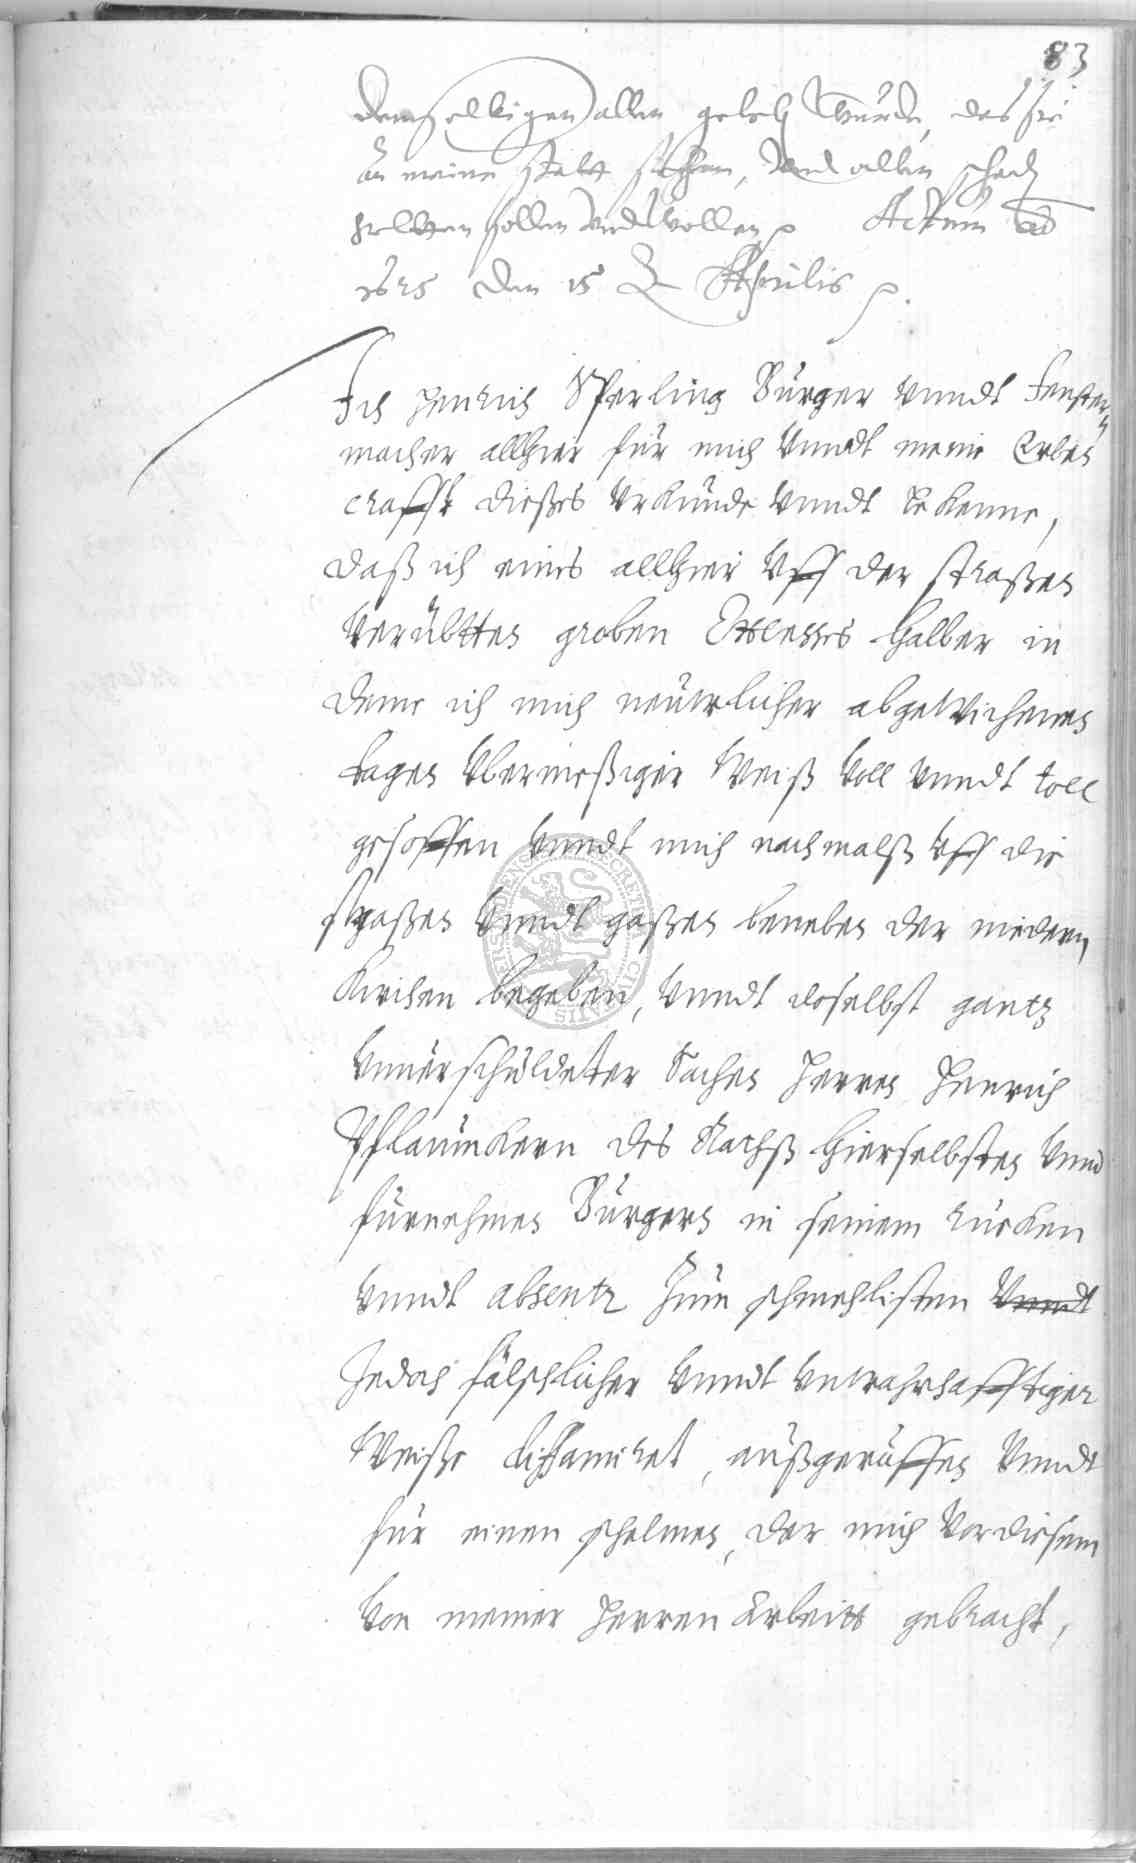 83
demselbigen allen gelebt wurde, das sie
an meine stadt stehen, vnd allen schad
gelten sollen vnd wollen Actum
1625 den 15 Aprilis
Ich Henrich Sperling Bürger vnndt Fenster-
macher allhier für mich vnndt meine Erben
crafft dießes vrkunde vnndt bekenne,
daß ich eines allhier vff der straßen
verübtten groben Excesses halber in
deme ich mich neuwrlicher abgewichenen
tagen vbermeßiger Weiß voll vnndt toll
gesoffen vnndt mich nachmalß vff die
straßen vnndt gaßen beneben der niedern
Kirchen begeben, vnndt doselbst gantz
vnuerschuldetter Sachen Herren Henrich
Pflaumkern des Rathß hierselbsten vnnd
fürnehmen Bürgers in seinem rücken
vnndt absentz zum schmehlisten vnndt
Jedoch fälschlicher vnndt vnwahrhafftiger
Weiße diffamiret, außgeruffen vnndt
für einen schelmen, der mich vor diesem
von meiner Herren Arbeitt gebracht,